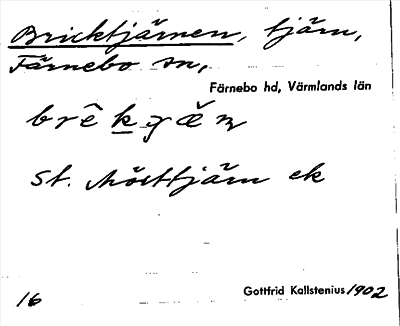 Bricktjärnen, tjärn,
Färnebo sn,
Färnebo hd, Värmlands län
St. Mörttjärn ek
16
Gottfrid Kallstenius 1902